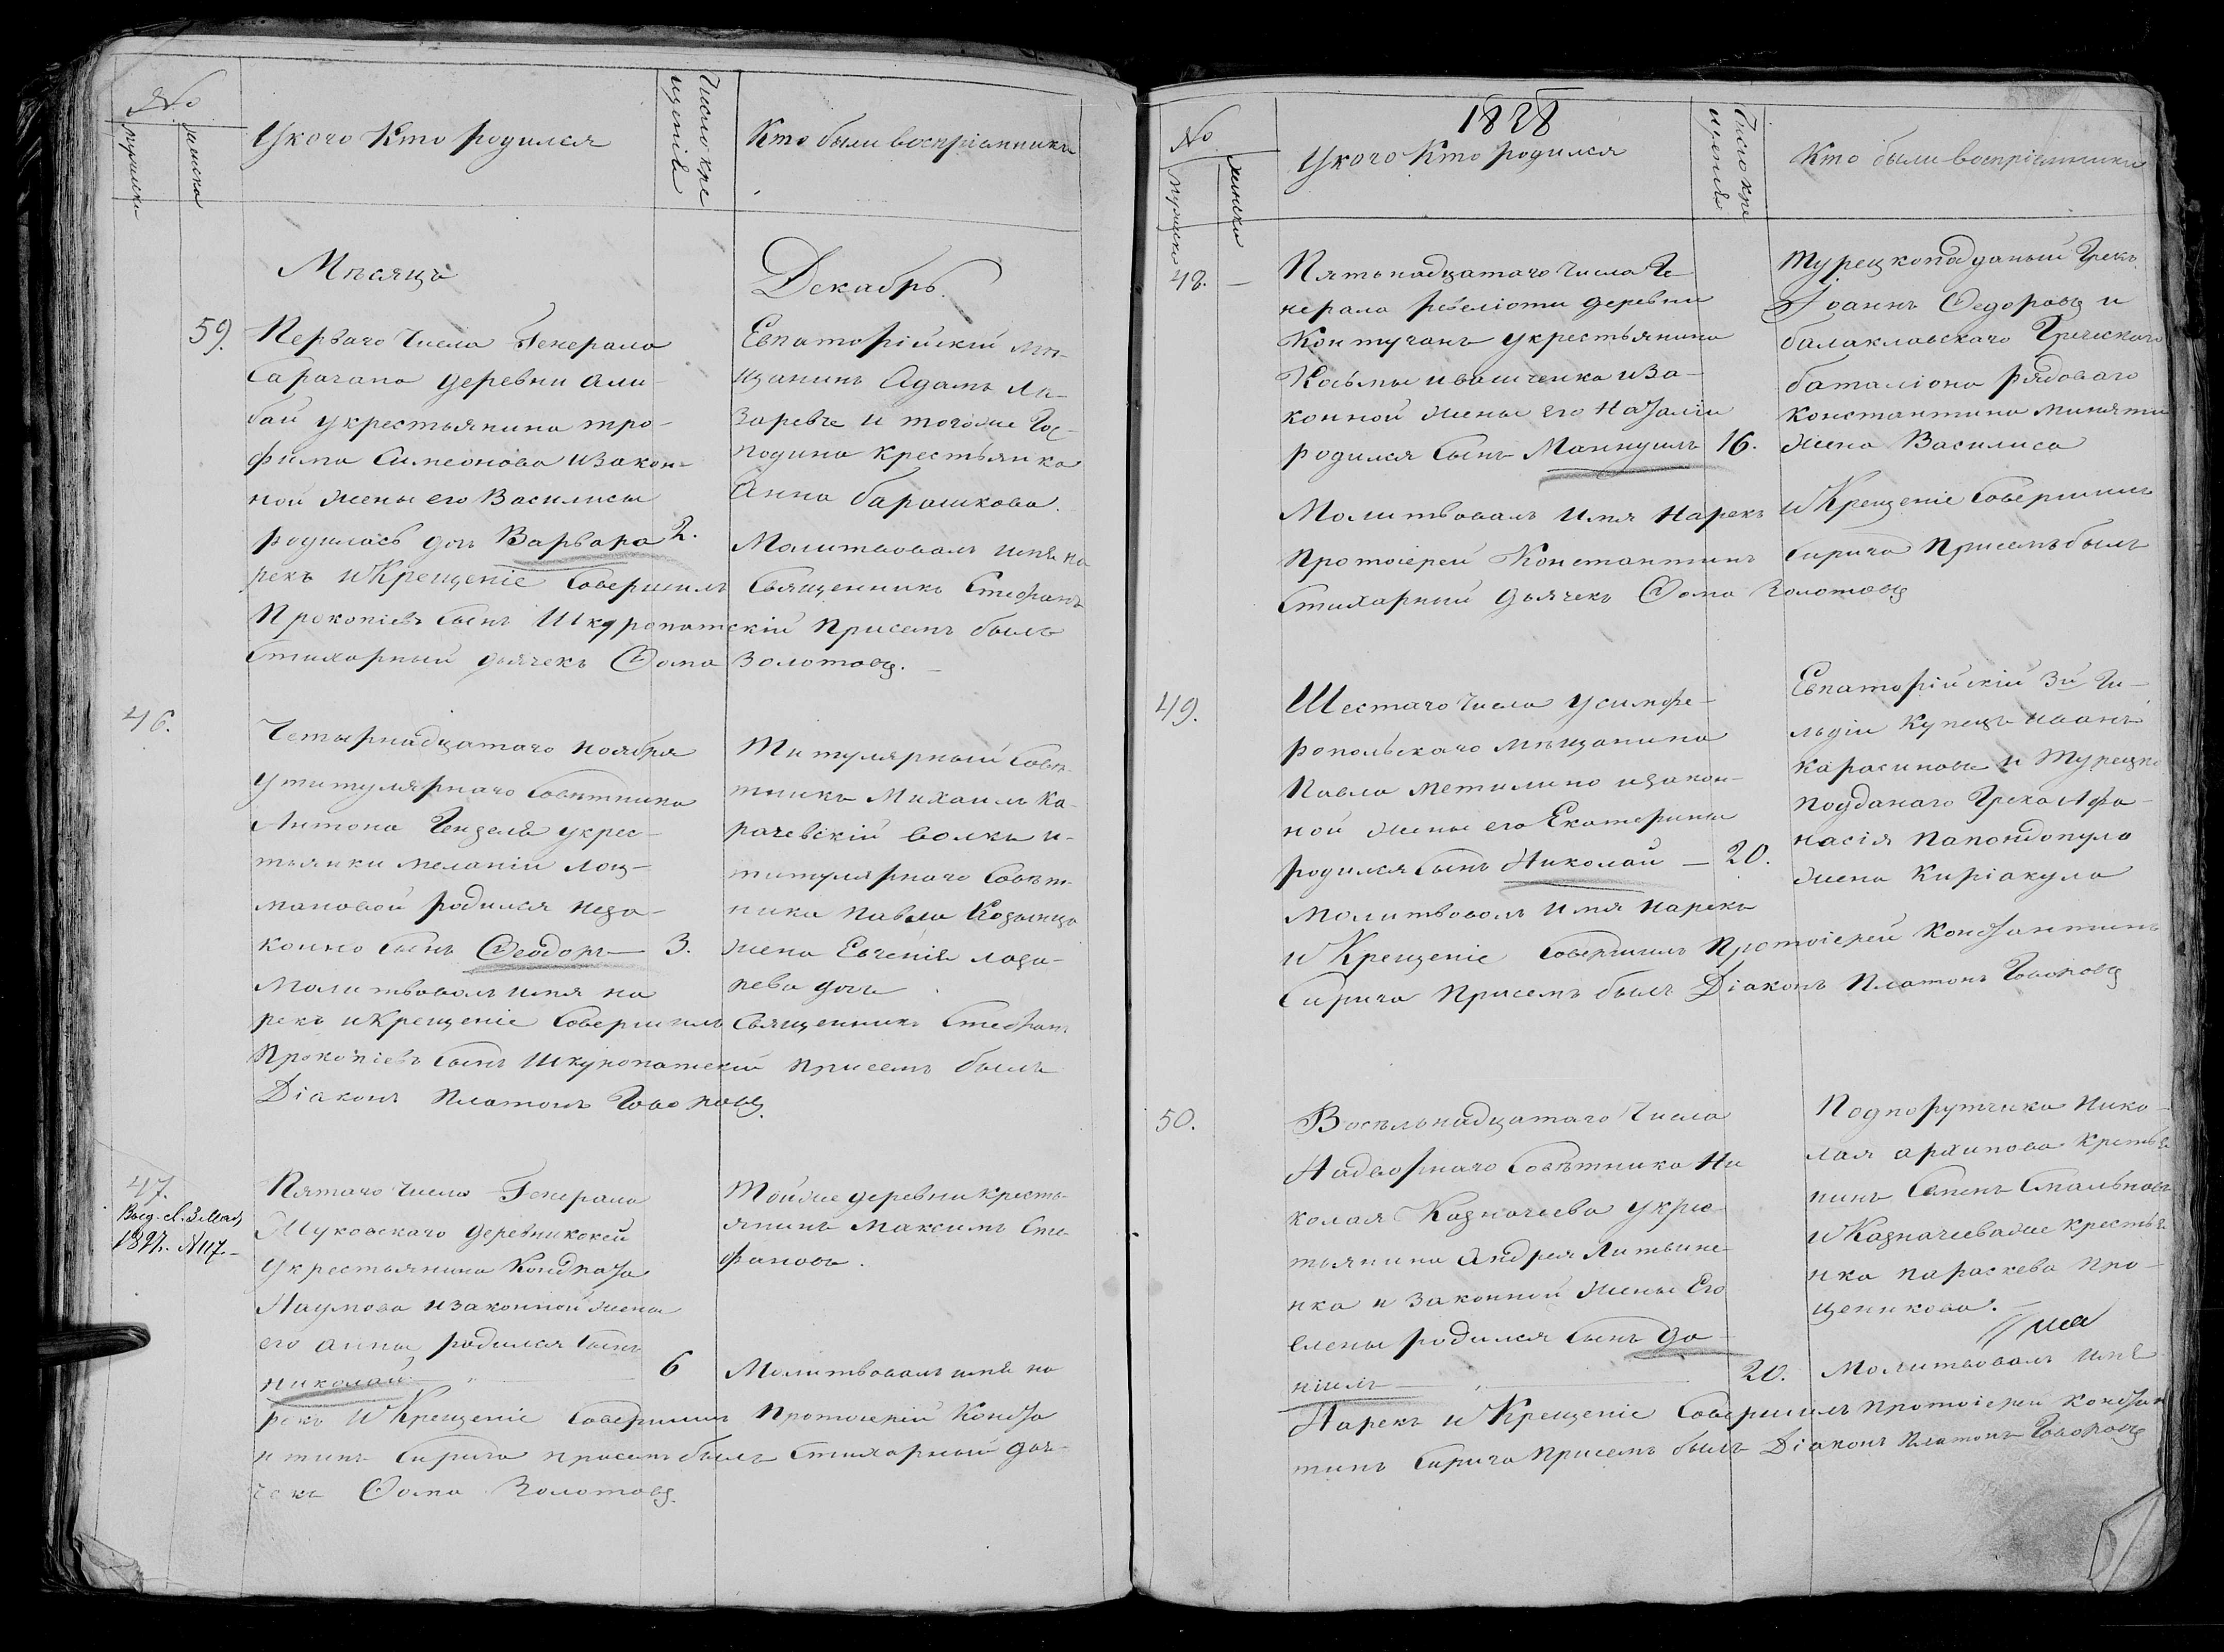 №
мужеска
женска
У кого Кто родился
Число кре
щенія
Кто были воспріемники
Мѣсяцъ
Декабрь.
59.
Перваго числа Генерала
Сарачана деревни али-
бай укрестьянина тро-
фима Симеонова изакон-
ной жены его Василисы
родилась дочь Варвара 2.
Евпаторійскій мѣ-
щанинъ Адамъ Ла-
заревъ и тогоже Гос-
подина крестьянка
Анна барашкова.
Молитвовалъ имя на
рекъ и Крещеніе Совершилъ Священникъ Стефанъ
Прокопіевъ Сынъ Шкуропатскій Присемъ былъ
Стихарный дьячекъ Ѳома Золотовъ.
46.
Четырнадцатаго ноября
утитулярнаго Совѣтника
Антона укрес-
тьянки меланіи Лоц-
мановой родился неза-
конно Сынъ Ѳеодоръ — 3.
Титулярный Совѣ-
тникъ Михаилъ Ка-
рачевскій волкъ и
титулярнаго Совѣт-
ника Павла
жена Евгенія лаза-
рева дочь
Молитвовалъ имя на
рекъ и Крещеніе Совершилъ Священникъ Стефанъ
Прокопіевъ Сынъ Шкуропатскій присемъ былъ
Діаконъ Платонъ Говоровъ.
47.
Выд. с. 3 Мая
1897. №117.
Пятаго числа Генерала
Жуковскаго деревни кокей
укрестьянина Кондрата
Наумова изаконной жены
его анны родился Сынъ
николай 6
Тойже деревни кресть-
янинъ Максимъ Сте-
фановъ.
Молитвовалъ имя на
рекъ и Крещеніе Совершилъ Протоіерей Конста
нтинъ Сирича присемъ былъ Стихарный дья-
чекъ Ѳома Золотовъ.
1828
№
мужеска
женска
У кого Кто родился
Число кре
щенія
Кто были воспріемники
48. —
Пятьнадцатаго числа Ге-
нерала ревеліоти деревни
Контуганъ укрестьянина
Косьмы ивашченка иза-
конной жены его Наталіи
родился Сынъ Мануилъ 16.
Турецкоподаный Грекъ
Іоаннъ Ѳедоровъ и
балаклавскаго Греческаго
баталіона рядоваго
константина миняти
жена Василиса
Молитвовалъ имя Нарекъ и Крещеніе Совершилъ
Протоіерей Константинъ Сирича Присемъ былъ
Стихарный дьячекъ Ѳома Золотовъ
49.
Шестаго числа усимфе-
ропольскаго мѣщанина
Павла метилино изакон-
ной жены его Екатерины
родился Сынъ Николай — 20.
Евпаторійскій 3й Ги-
льдіи Купецъ иванъ
карасиновъ и Турецко
подданаго Грека Афа-
насія папондопула
жена Киріакула
Молитвовалъ имя нарекъ
и Крещеніе Совершилъ Протоіерей Константинъ
Сирича Присемъ былъ Діаконъ Платонъ Говоровъ
50.
Восемьнадцатаго числа
Надворнаго Совѣтника Ни
колая Казначеева укрес-
тьянина Андрея Литвине-
нка и законной жены Его
елены родился Сынъ да-
ніилъ 20.
Подпорутчика Нико-
лая архипова Крестья
нинъ
и Казначеевадже крестья
нка параскева Про-
щеникова.
Молитвовалъ имя
Нарекъ и Крещеніе Совершилъ протоіерей констан
тинъ Сирича Присемъ былъ Діаконъ Платонъ Говоровъ